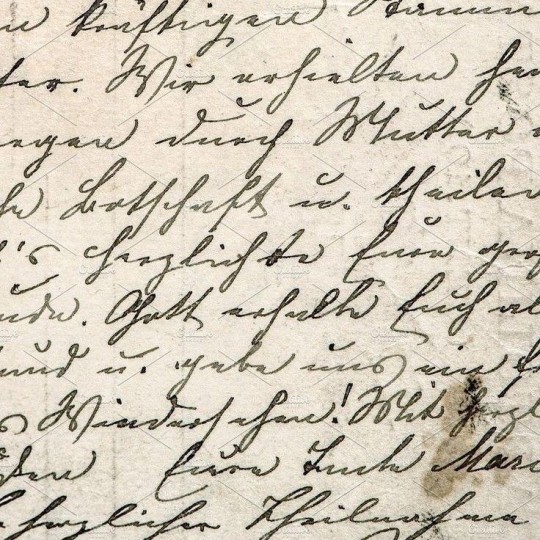 n kräftigen Stamm
ter. Wir erhielten heu
rgen durch Mutter
he Botschaft u. theilen
t's herzlichste Eure gro
ude. Gott erhalte Euch al
und u. gebe uns ein fr
s Wiedersehen! Mit herzl
ßen Eure Tante Marie
herzlicher Theilnahme